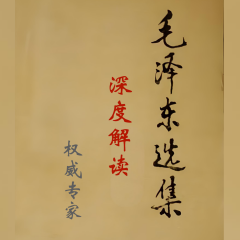 毛泽东选集
深度解读
权威专家